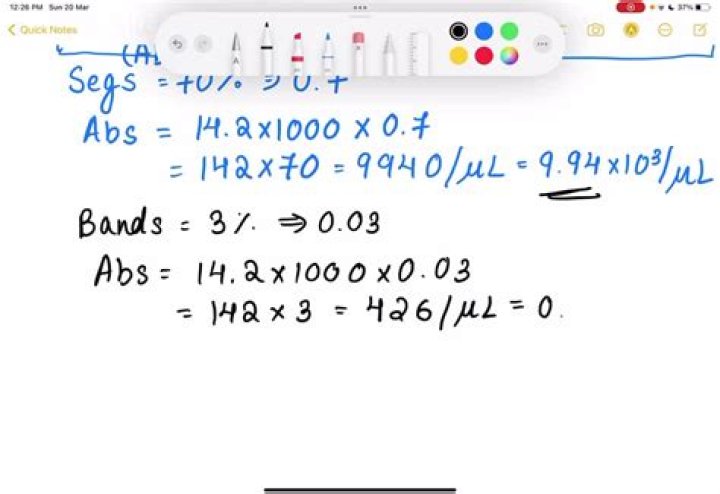 12:26 PM Sun 20 Mar
37%
Quick Notes
Segs = 70% ⇒ 0.7
Abs = 14.2×1000 × 0.7
= 142×70 = 9940/μL = 9.94×10³/μL
Bands = 3%. ⇒ 0.03
Abs = 14.2×1000×0.03
= 142 × 3 = 426/μL = 0.